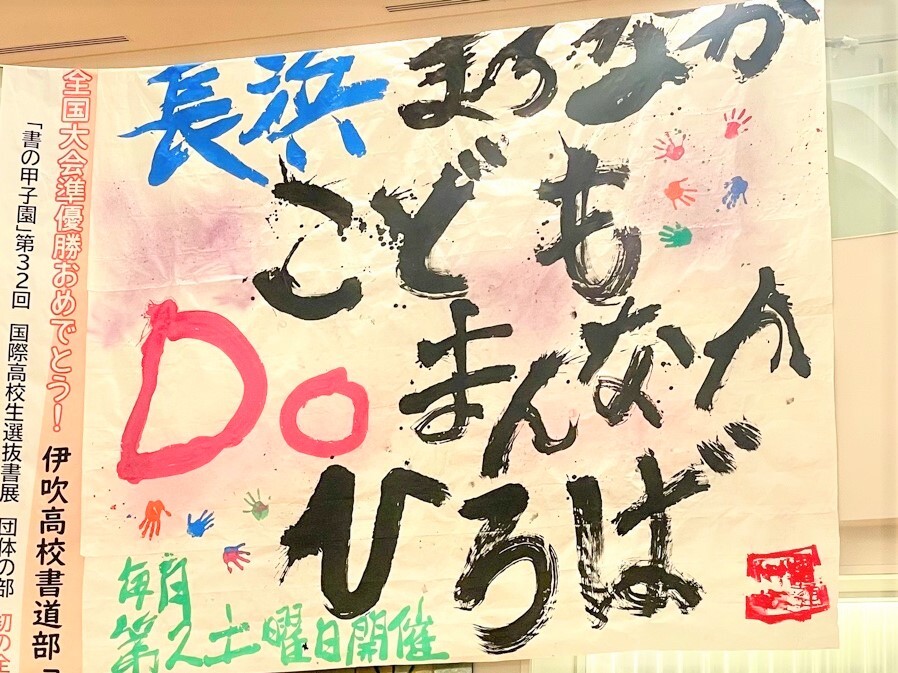 長浜 まちなか
こども
Do まんなか
ひろば
毎月
第2土曜日開催
全国大会準優勝おめでとう! 伊吹高校書道部「
「書の甲子園」第32回 国際高校生選抜書展 団体の部 初の